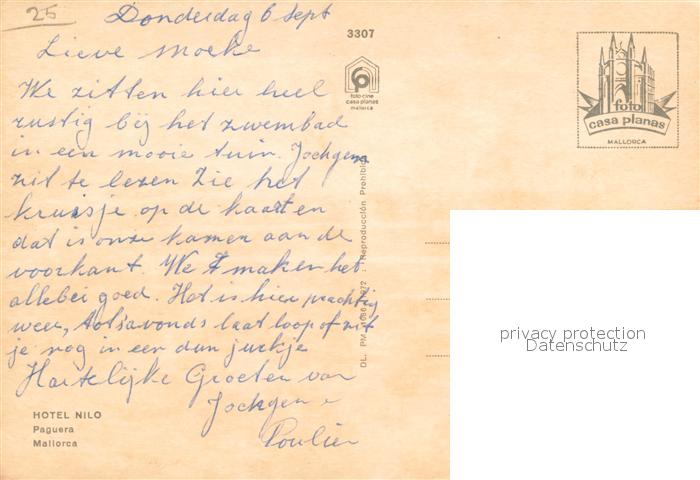 25
Donderdag 6 Sept
Lieve Moeke
We zitten hier heel
rustig bij het zwembad
in een mooie tuin. Jochgem
zit te lezen Zie het
kruisje op de kaart en
dat is onze kamer aan de
voorkant. We maken het
allebei goed. Het is hier prachtig
weer, tot s'avonds laat loop of zit
je nog in een dun jurkje
Hartelijke Groeten van
Jochgem e
Poulien
HOTEL NILO
Paguera
Mallorca
3307
foto cine
casa planas
mallorca
Reproducción Prohibida
DL. PM.
foto
casa planas
MALLORCA
privacy protection
Datenschutz